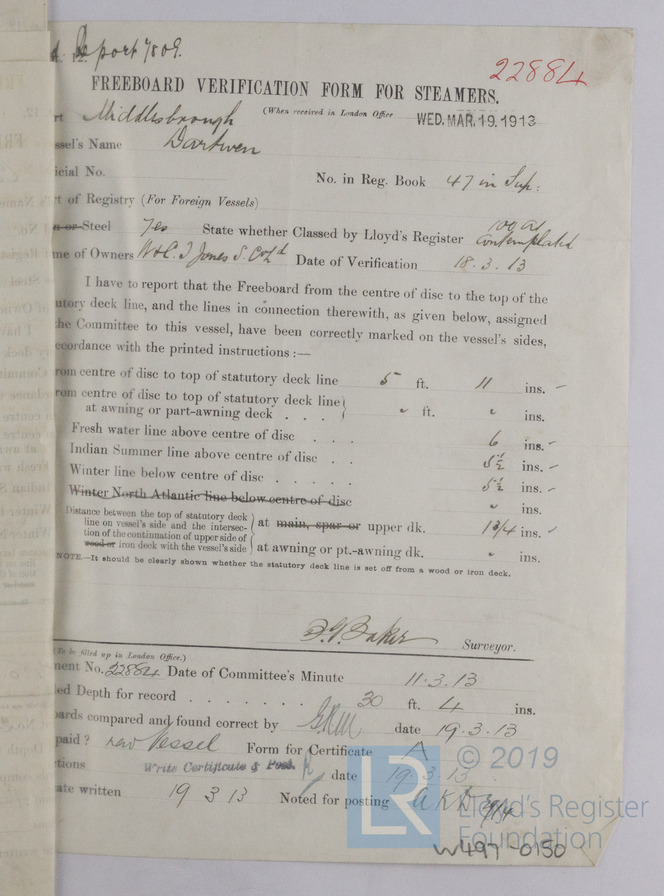 Report 7809.
22884
FREEBOARD VERIFICATION FORM FOR STEAMERS.
(When received in London Office WED. MAR. 19. 1913
rt Middlesbrough
ssel's Name Dartwen
icial No. No. in Reg. Book 47 in Sup:
t of Registry (For Foreign Vessels)
n or Steel Yes State whether Classed by Lloyd's Register 100 A1 contemplated
me of Owners W & C. T Jones S. Co Ltd Date of Verification 18.3.13
I have to report that the Freeboard from the centre of disc to the top of the
utory deck line, and the lines in connection therewith, as given below, assigned
he Committee to this vessel, have been correctly marked on the vessel's sides,
ccordance with the printed instructions :—
rom centre of disc to top of statutory deck line 5 ft. 11 ins.
rom centre of disc to top of statutory deck line
at awning or part-awning deck . . . " ft. " ins.
Fresh water line above centre of disc . . . 6 ins.
Indian Summer line above centre of disc . . 5½ ins.
Winter line below centre of disc . . . . . 5½ ins.
Winter North Atlantic line below centre of disc " ins.
Distance between the top of statutory deck
line on vessel's side and the intersec-
tion of the continuation of upper side of
wood or iron deck with the vessel's side
at main, spar or upper dk. 1 3/4 ins.
at awning or pt.-awning dk. " ins.
NOTE.—It should be clearly shown whether the statutory deck line is set off from a wood or iron deck.
Baker Surveyor.
(To be filled up in London Office.)
ment No. 22884 Date of Committee's Minute 11.3.13
ed Depth for record . . . . . . . 30 ft. 4 ins.
ards compared and found correct by date 19.3.13
paid? new Vessel Form for Certificate A
ctions Write Certificate & Post. date 19.3.13
ate written 19 3 13 Noted for posting
© 2019
LR
Lloyd's Register
Foundation
W497-0150